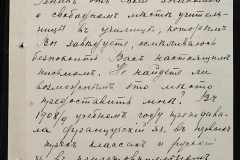 о свободномъ мѣстѣ учитель-
ницы въ училищѣ, которымъ
Вы завѣдуете, осмѣливаюсь
безпокоить Васъ настоящимъ
письмомъ. Не найдете ли
возможнымъ это мѣсто
предоставить мнѣ? Въ
190 учебномъ году преподава-
ла французскій яз. въ
классахъ и русскій